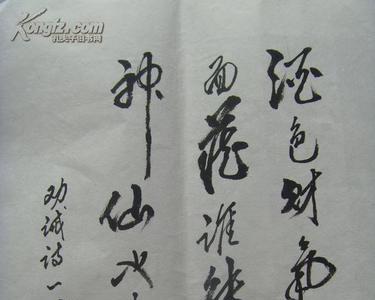 Kongfz.com
孔夫子旧书网
酒色财气
面前谁能
神仙也
劝诫诗一